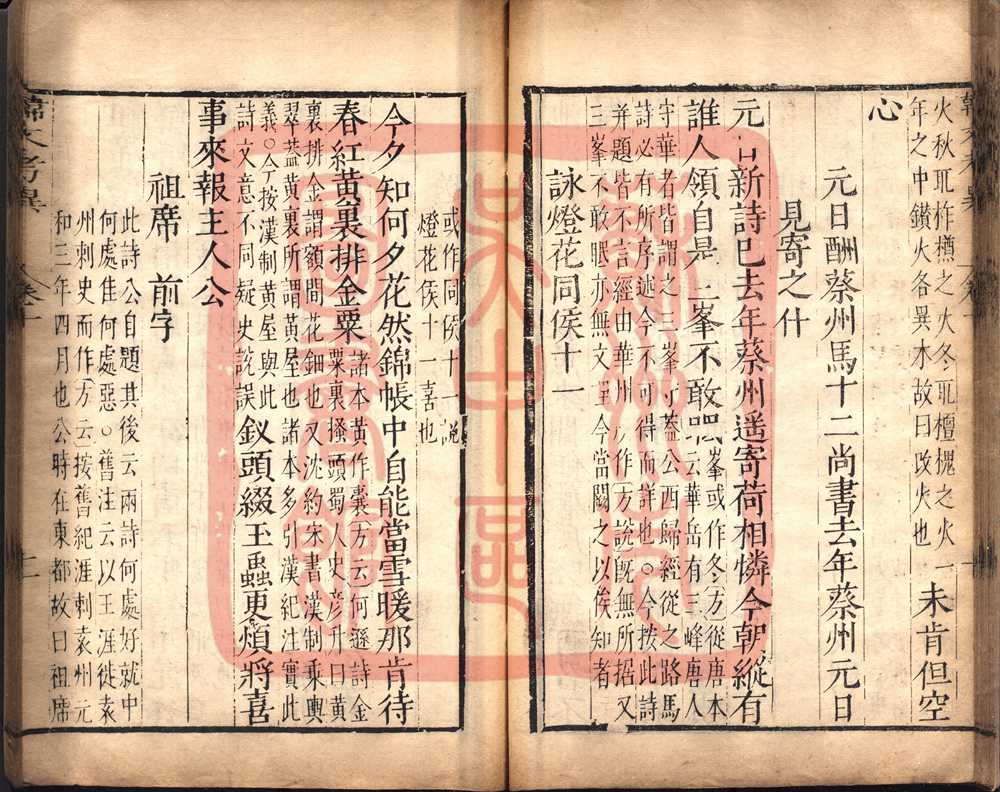 火秋取柞楢之火冬取檀槐之火一
年之中鑽火各異木故曰改火也
未肯但空
心
元日酬蔡州馬十二尚書去年蔡州元日
見寄之什
元日新詩已去年蔡州遥寄荷相憐今朝縱有
誰人領自是三峯不敢眠
峯或作冬方從唐本
云華岳有三峰唐人
守華者皆謂之三峯守蓋公西歸經從之路馬
詩必有所序述今不可得而詳也○今按此詩
并題皆不言經由華州方作方說旣無所据又
三峯不敢眠亦無文理今當闕之以俟知者
詠燈花同侯十一
或作同侯十一說
燈花侯十一喜也
今夕知何夕花然錦帳中自能當雪暖那肯待
春紅黄裏排金粟
諸本黄作囊方云何遜詩金
粟裏搔頭蜀人史彦升曰黄
裏排金謂額間花鈿也又沈約宋書漢制乘輿
翠蓋黄裏所謂黄屋也諸本多引漢紀注實此
義○今按漢制黄屋與此
詩文意不同疑史說誤
釵頭綴玉蟲更煩將喜
事來報主人公
祖席 前字
此詩公自題其後云兩詩何處好就中
何處佳何處惡○舊注云以王涯徙袁
州刺史而作方云按舊紀涯刺袁州元
和三年四月也公時在東都故曰祖席
韓文考異
卷十
十一